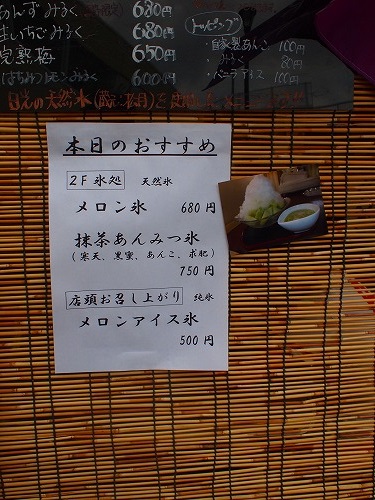 あんずみるく 680円
生いちごみるく 680円
完熟梅 650円
はちみつレモンみるく 600円
トッピング
自家製あんこ 100円
みるく 80円
バニラアイス 100円
日光の天然氷
本日のおすすめ
2F 氷処 天然氷
メロン氷 680円
抹茶あんみつ氷
(寒天、黒蜜、あんこ、求肥)
750円
店頭お召し上がり 純氷
メロンアイス氷
500円